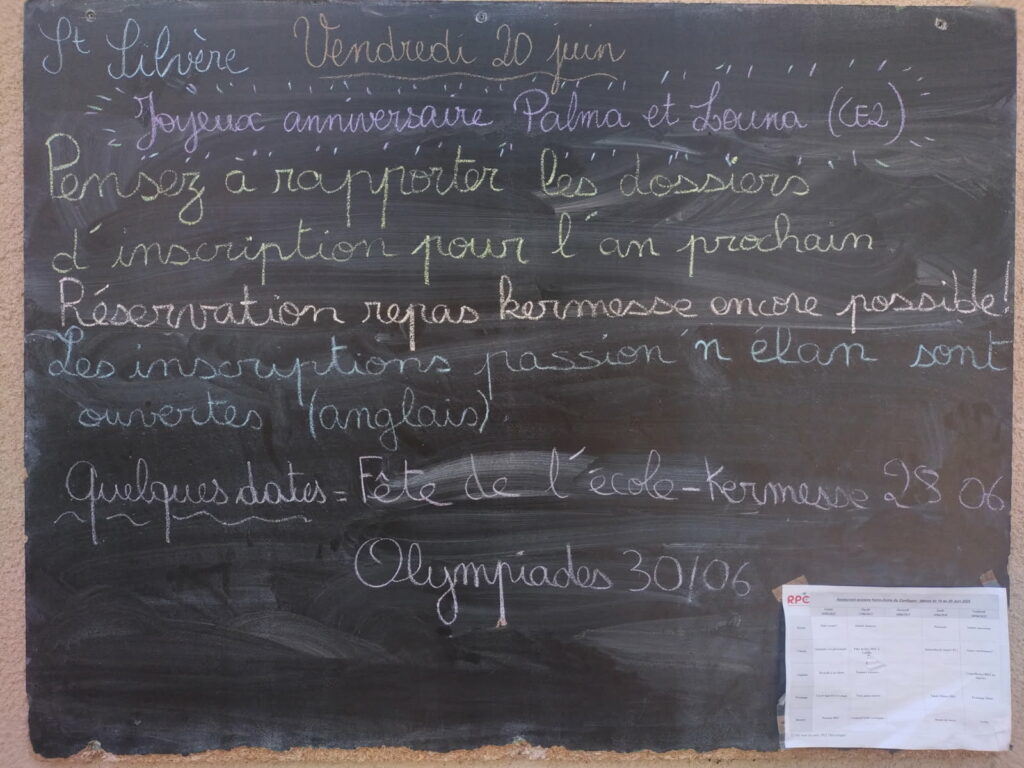 St Silvère Vendredi 20 juin
Joyeux anniversaire Palma et Louna (CE2)
Pensez à rapporter les dossiers
d'inscription pour l'an prochain
Réservation repas kermesse encore possible!
Les inscriptions passion'n élan sont
ouvertes (anglais)
Quelques dates = Fête de l'école - Kermesse 28 06
Olympiades 30/06
RPC